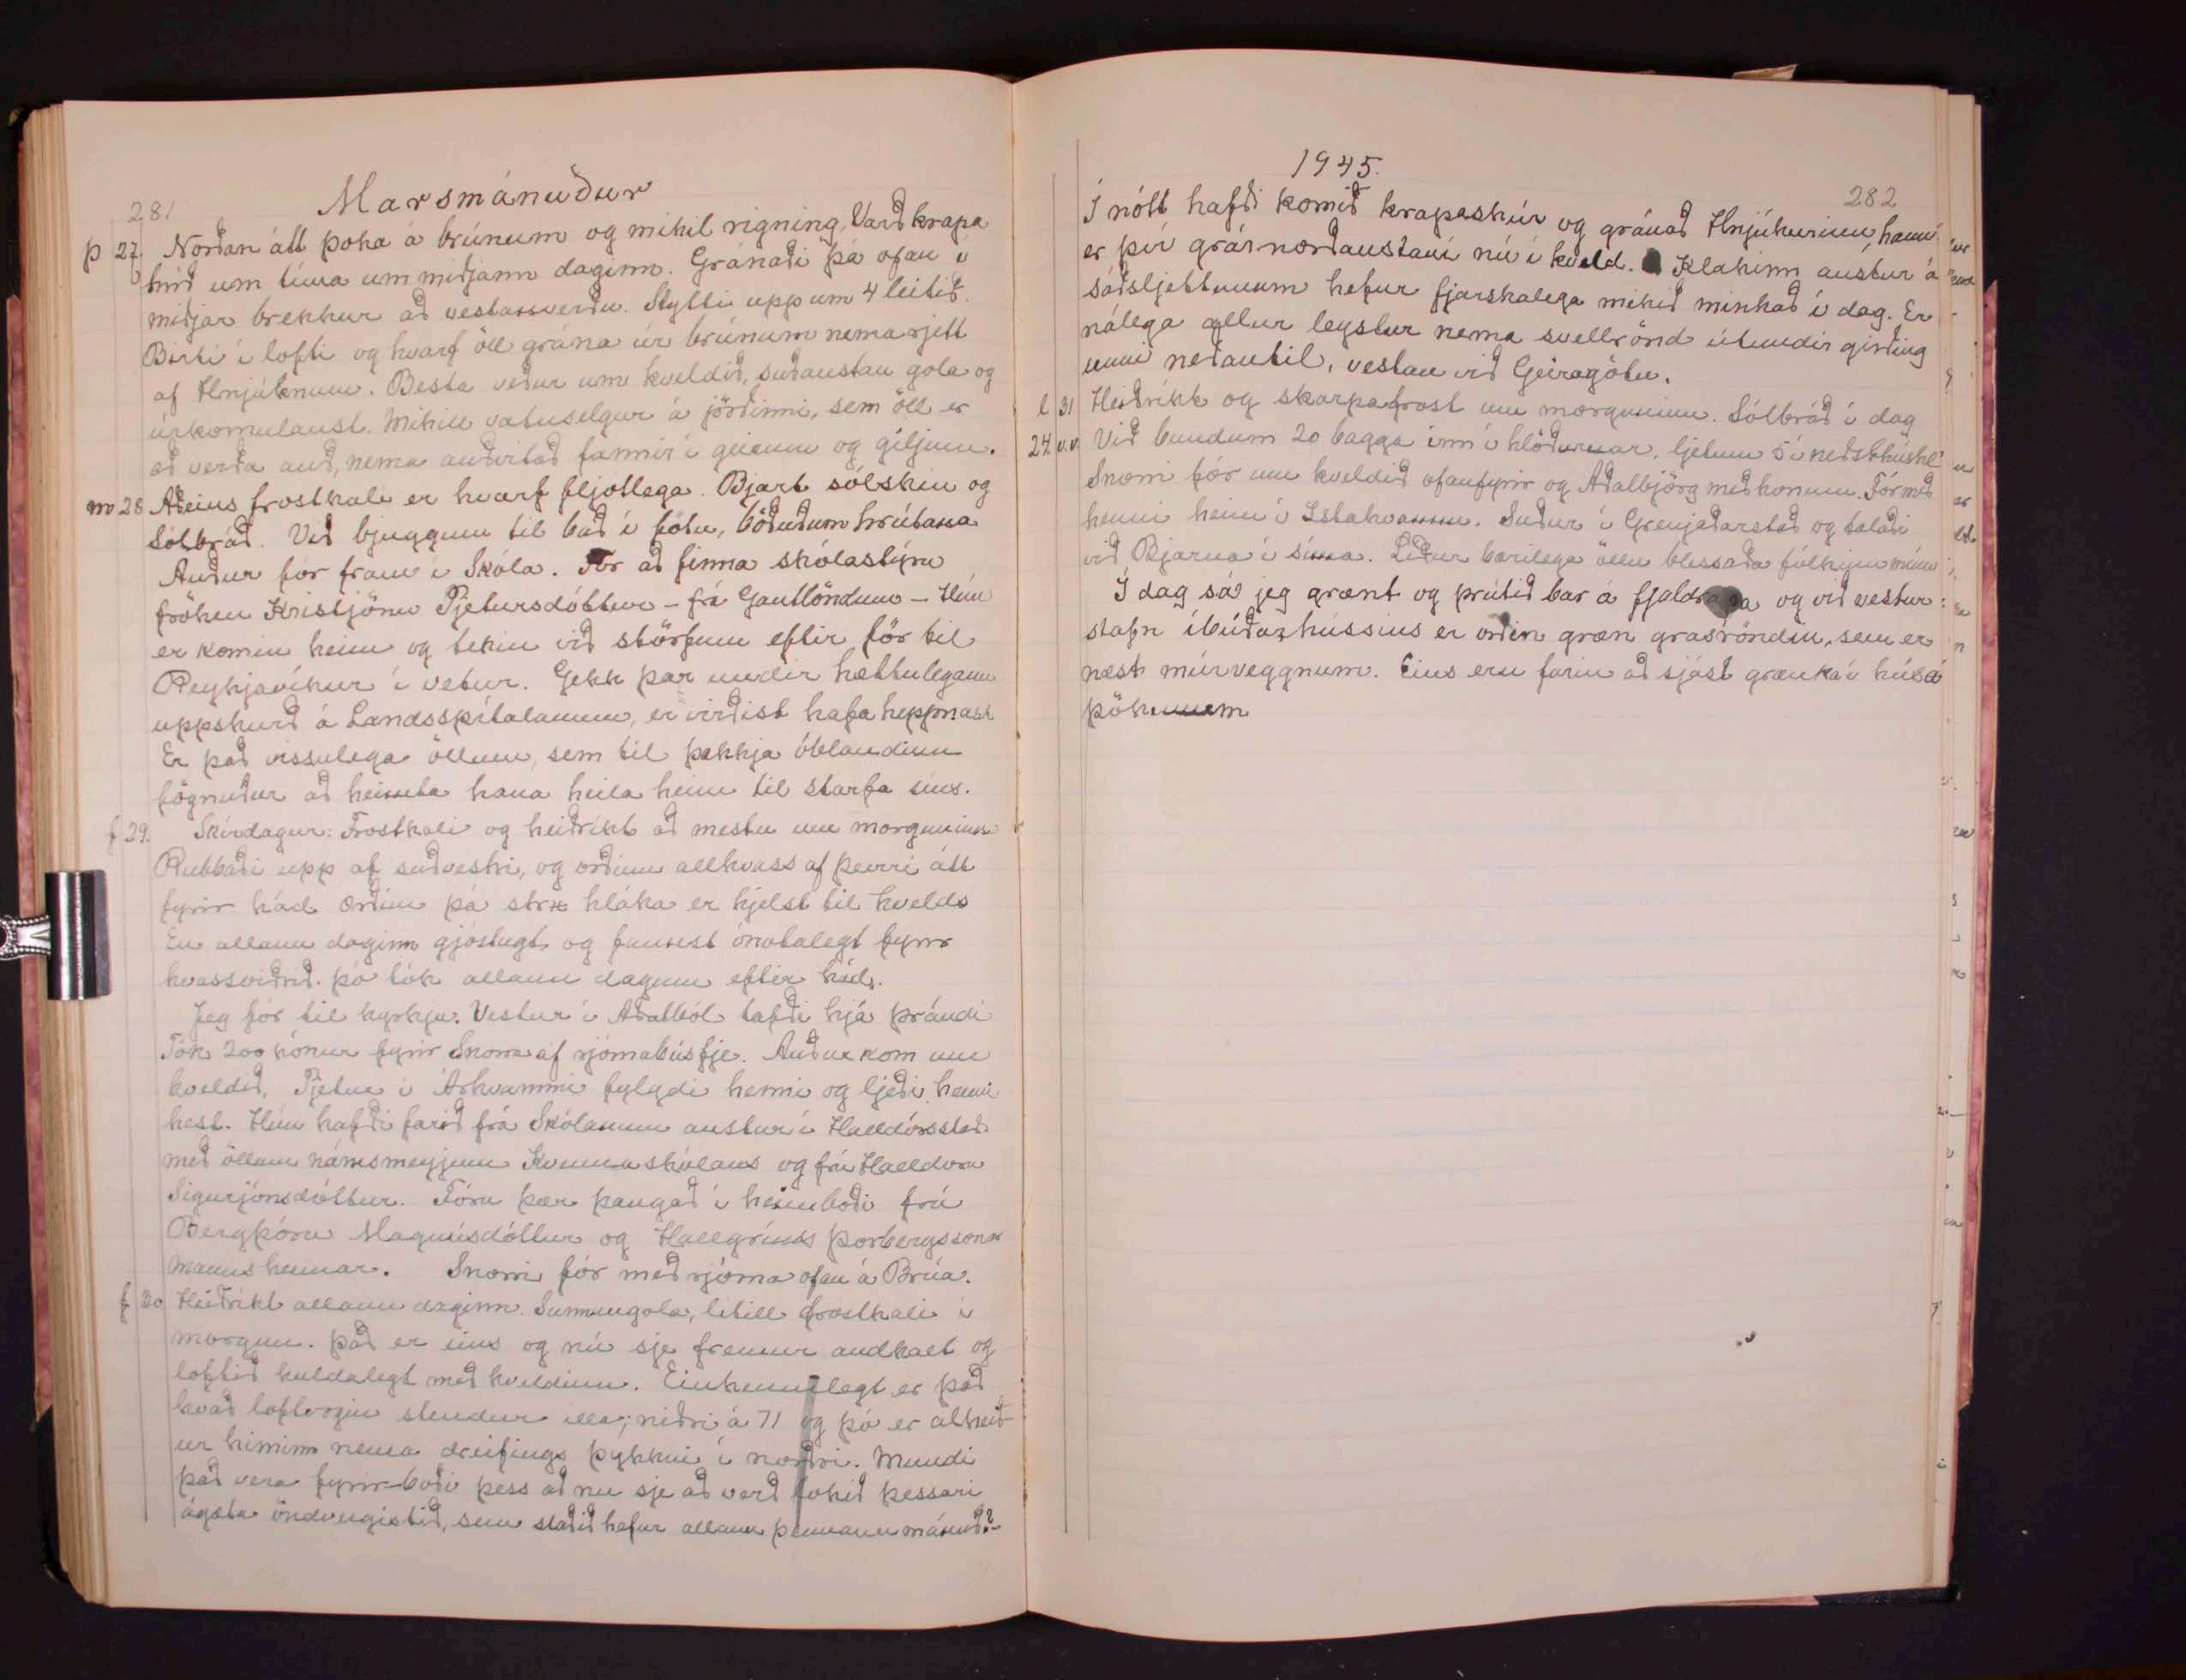 281
Marsmánuður
þ 27. Norðan átt þoka á brúnum og mikil rigning. Varð krapa
hríð um tíma um miðjann daginn. Gránaði þá ofan í
miðjar brekkur að vestanverðu. Stytti upp um 4 leitið.
Birti í lofti og hvarf öll grána úr brúnum nema rjett
af Hnjúknum. Besta veður um kveldið, suðaustan gola og
úrkomulaust. Mikill vatnselgur á jörðinni, sem öll er
að verða auð, nema auðvitað fannir í giljum.
m 28 Aðeins frostkali er hvarf fljótlega. Bjart sólskin og
Sólbráð. Við bjuggum til bað í fötu, böðuðum hrútana
Auður fór fram í Skóla. Fór að finna skólastýru
fröken Kristjönu Pjetursdóttur - frá Gautlöndum - Hún
er komin heim og tekin við störfum eftir för til
Reykjavíkur í vetur. Gekk þar undir hættulegann
uppskurð á Landsspítalanum, er virðist hafa heppnast
Er það vissulega öllum, sem til þekkja óblandinn
fögnuður að heimta hana heila heim til starfa sins.
f 29. Skírdagur: Frostkali og heiðríkt að mestu um morguninn
Rubbaði upp af suðvestri, og orðinn allhvass af þeirri átt
fyrir hád. Orðin þá stre hláka er hjelst til kvelds
En allann daginn gjóstugt og fannst ónotalegt fyrir
hvassviðrið. þó tók allann daginn eftir hád.
Jeg fór til kyrkju. Vestur í Aðalból tafði hjá þrándi
Tók 200 krónur fyrir Snorra af rjómabúsfje. Auður kom um
kveldið, Pjetur í Árhvammi fylgdi henni og ljeði henni
hest. Hún hafði farið frá Skólanum austur í Halldórsstaði
með öllum námsmeyjum Kvennaskólans og frú Halldóru
Sigurjónsdóttur. Fóru þær þangað í heimboði frú
Bergþóru Magnúsdóttur og Hallgríms þorbergssonar
manns hennar. Snorri fór með rjóma ofan á Brúa.
f 30 Heiðríkt allann daginn. Sunnangola, lítill frostkali í
morgun. það er eins og nú sje fremur andkalt og
loftið kuldalegt með kveldinu. Einkennilegt er það
hvað loftvogin stendur illa; niðri á 71 og þó er alheið-
ur himinn nema dreifings þykkni í norðri. Mundi
það vera fyrirboði þess að nu sje að verð lokið þessari
ágætu öndvegistíð, sem staðið hefur allann þennann mánuð?
1945.
282
Í nótt hafði komið krapaskúr og gránað Hnjúkurinn, hann
er því grár norðaustaní nú í kveld. Klakinn austur á
sáðsljettunum hefur fjarskalega mikið minkað í dag. Er
nálega allur leystur nema svellrönd útundir girðing
unni neðantil, vestan við Geiragötu.
l 31 Heiðríkt og skarpafrost um morguninn. Sólbráð í dag
24 v.v. Við bundum 20 bagga inn í hlöðurnar, ljetum 5 í
Snorri fór um kveldið ofanfyrir og Aðalbjörg með honum. Fór með
henni heim í Ystahvamm. Suður í Grenjaðarstað og talaði
við Bjarna í síma. Líður bærilega öllu blessaða fólkinu mínu
Í dag sá jeg grænt og þrútið bar á fjaldrapa og við vestur
stafn íbúðarhússins er orðin græn grasröndin, sem er
næst múrveggnum. Eins eru farin að sjást grænka í húsa
þökunum